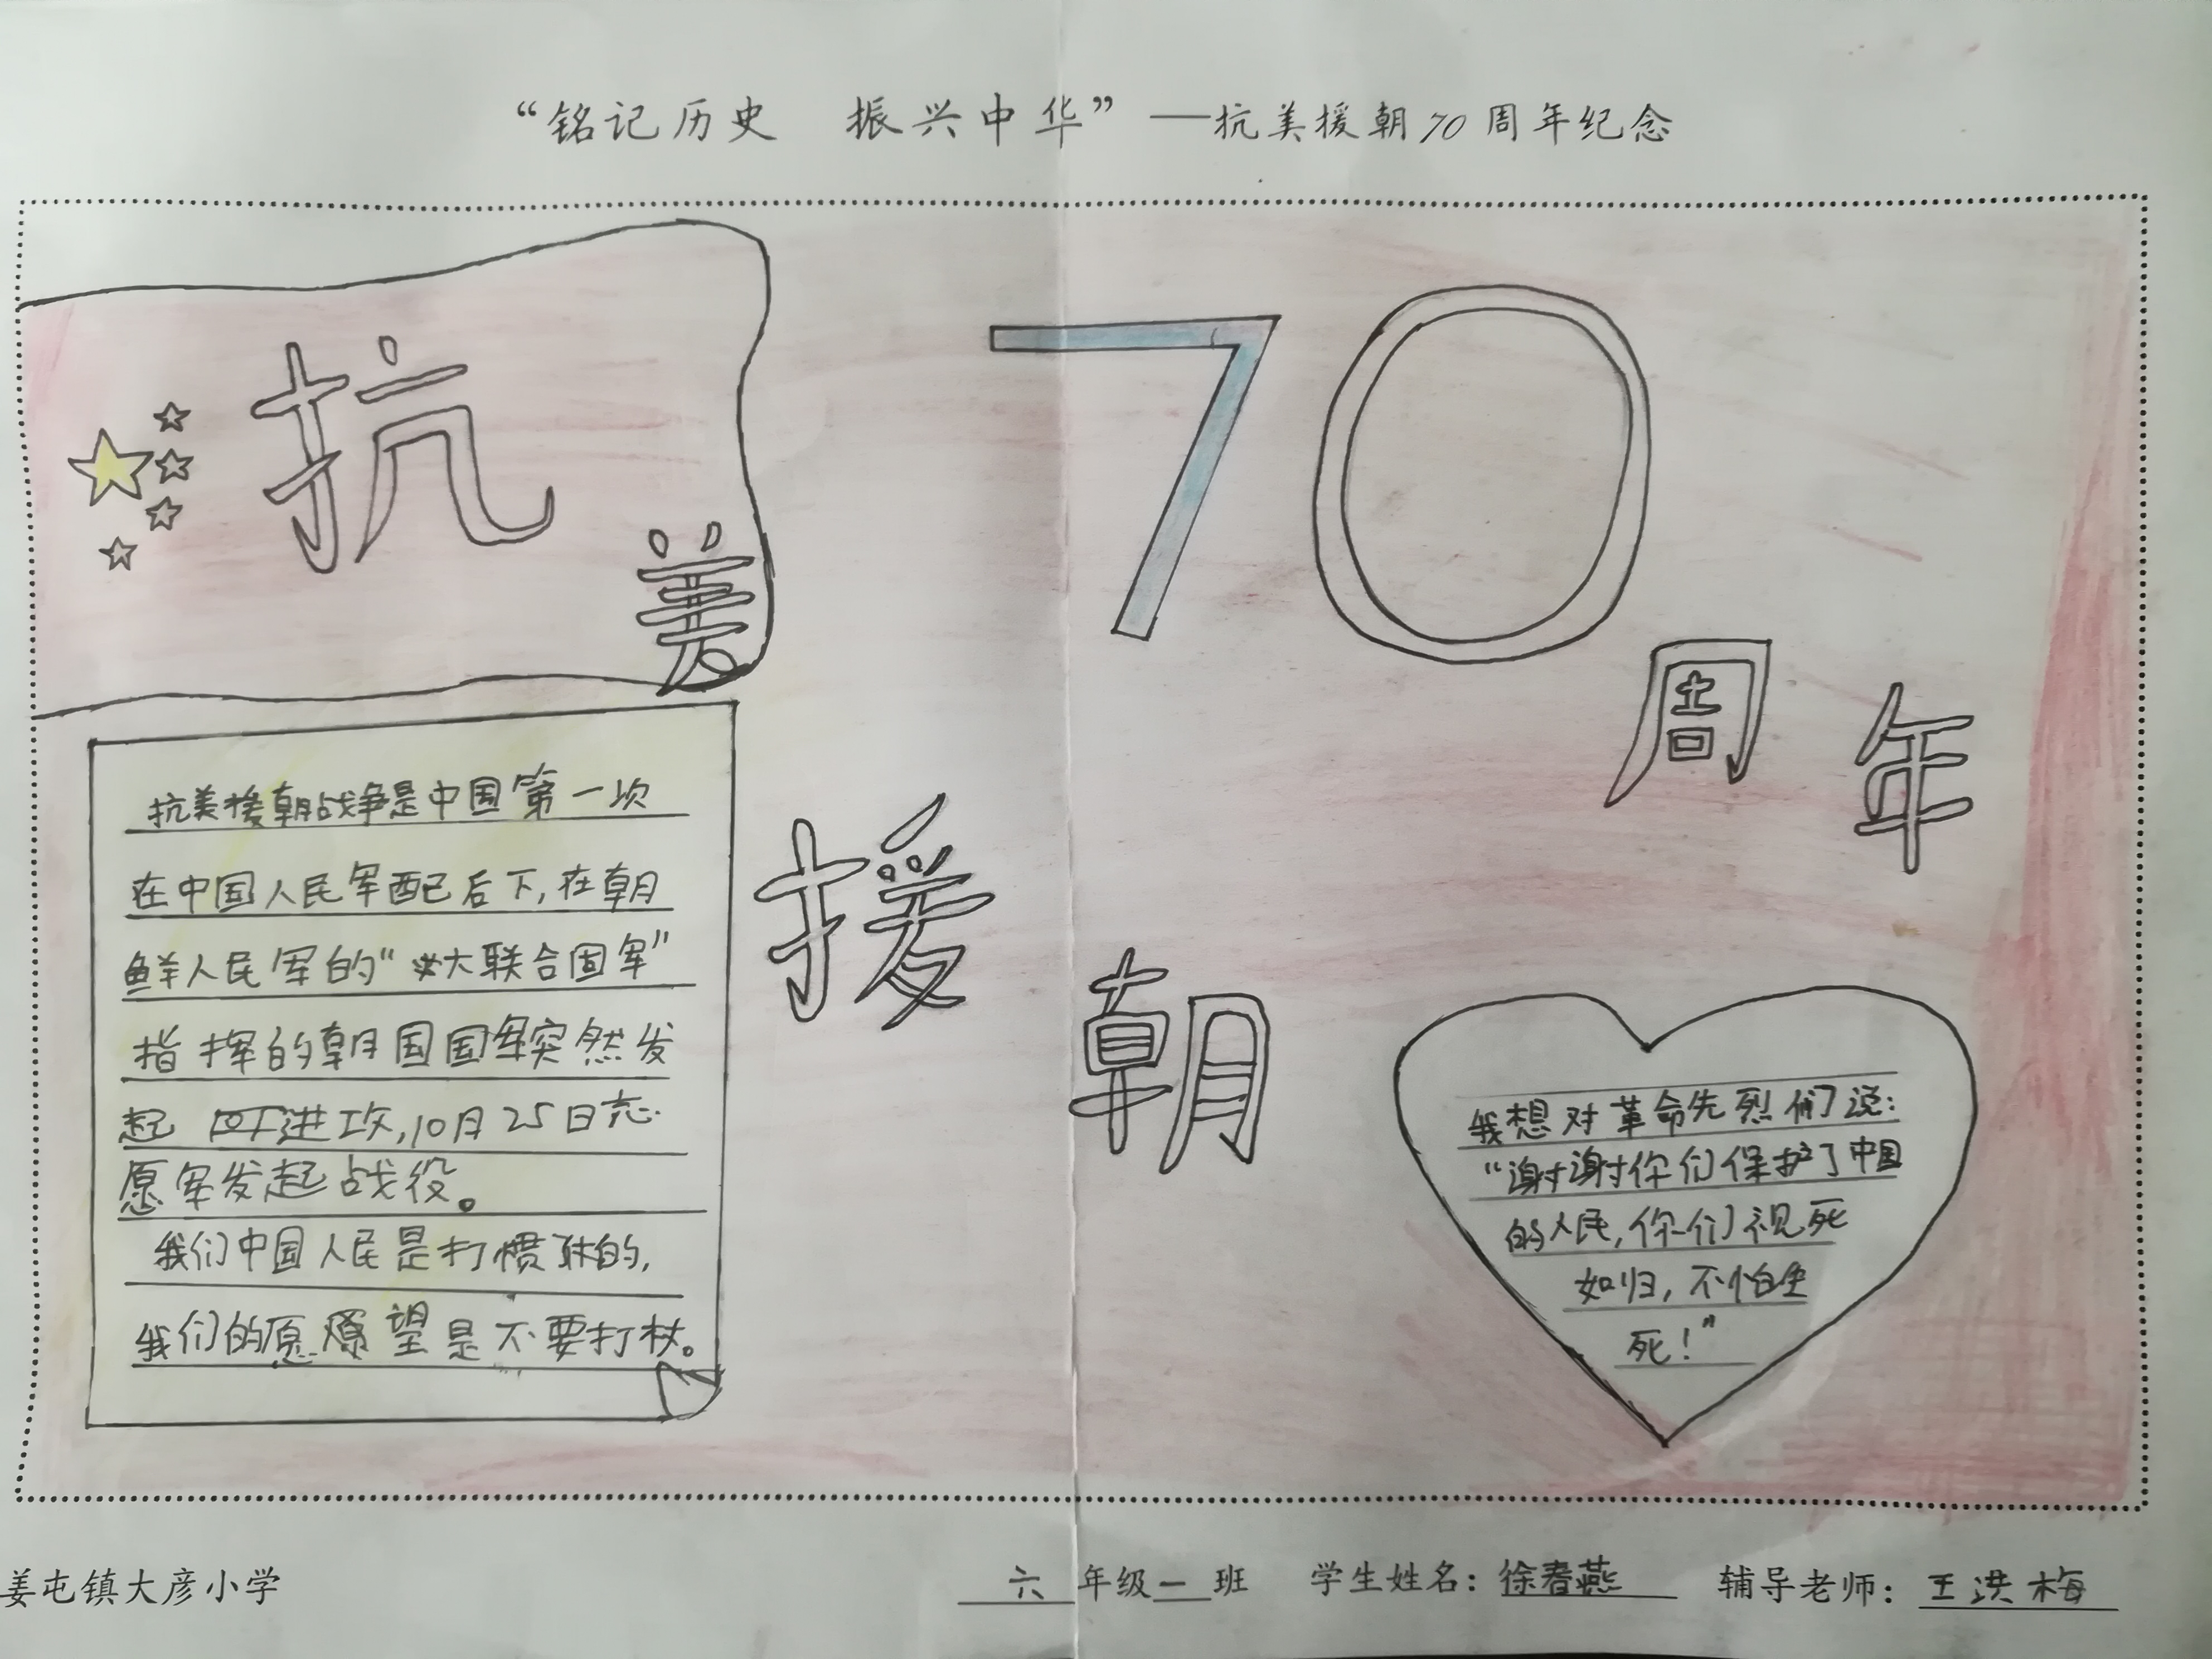 “铭记历史 振兴中华”——抗美援朝70周年纪念
抗
美
70
周年
援
朝
抗美援朝战争是中国第一次
在中国人民军配己后下,在朝
鲜人民军的“大联合国军”
指挥的朝国国军突然发
起 进攻,10月25日志
愿军发起战役。
我们中国人民是打惯的,
我们的愿望是不要打杖。
我想对革命先烈们说:
“谢谢你们保护了中国
的人民,你们视死
如归,不怕生
死!”
姜屯镇大彦小学 六年级一班 学生姓名:徐春燕 辅导老师:王洪梅